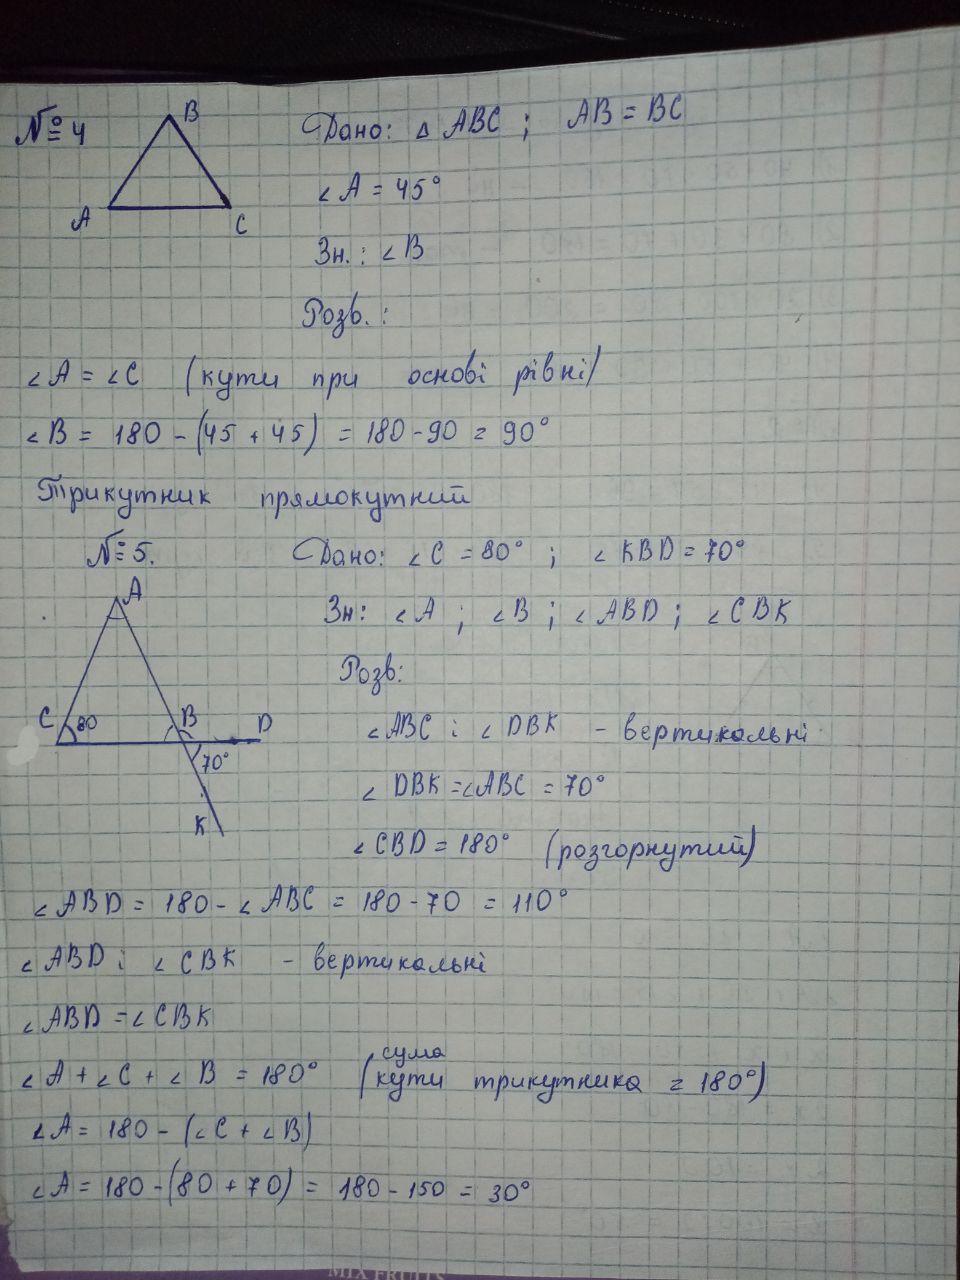 № 4
B
A
C
Дано: △ ABC ; AB = BC
∠A = 45°
Зн. : ∠B
Розв. :
∠A = ∠C (кути при основі рівні)
∠B = 180 - (45 + 45) = 180 - 90 = 90°
Трикутник прямокутний
№ 5.
Дано: ∠C = 80° ; ∠KBD = 70°
A
Зн: ∠A ; ∠B ; ∠ABD ; ∠CBK
Розв:
C 80 B D
70°
K
∠ABC і ∠DBK - вертикальні
∠DBK = ∠ABC = 70°
∠CBD = 180° (розгорнутий)
∠ABD = 180 - ∠ABC = 180 - 70 = 110°
∠ABD і ∠CBK - вертикальні
∠ABD = ∠CBK
сума
∠A + ∠C + ∠B = 180° (кути трикутника = 180°)
∠A = 180 - (∠C + ∠B)
∠A = 180 - (80 + 70) = 180 - 150 = 30°
MIX FRUITS